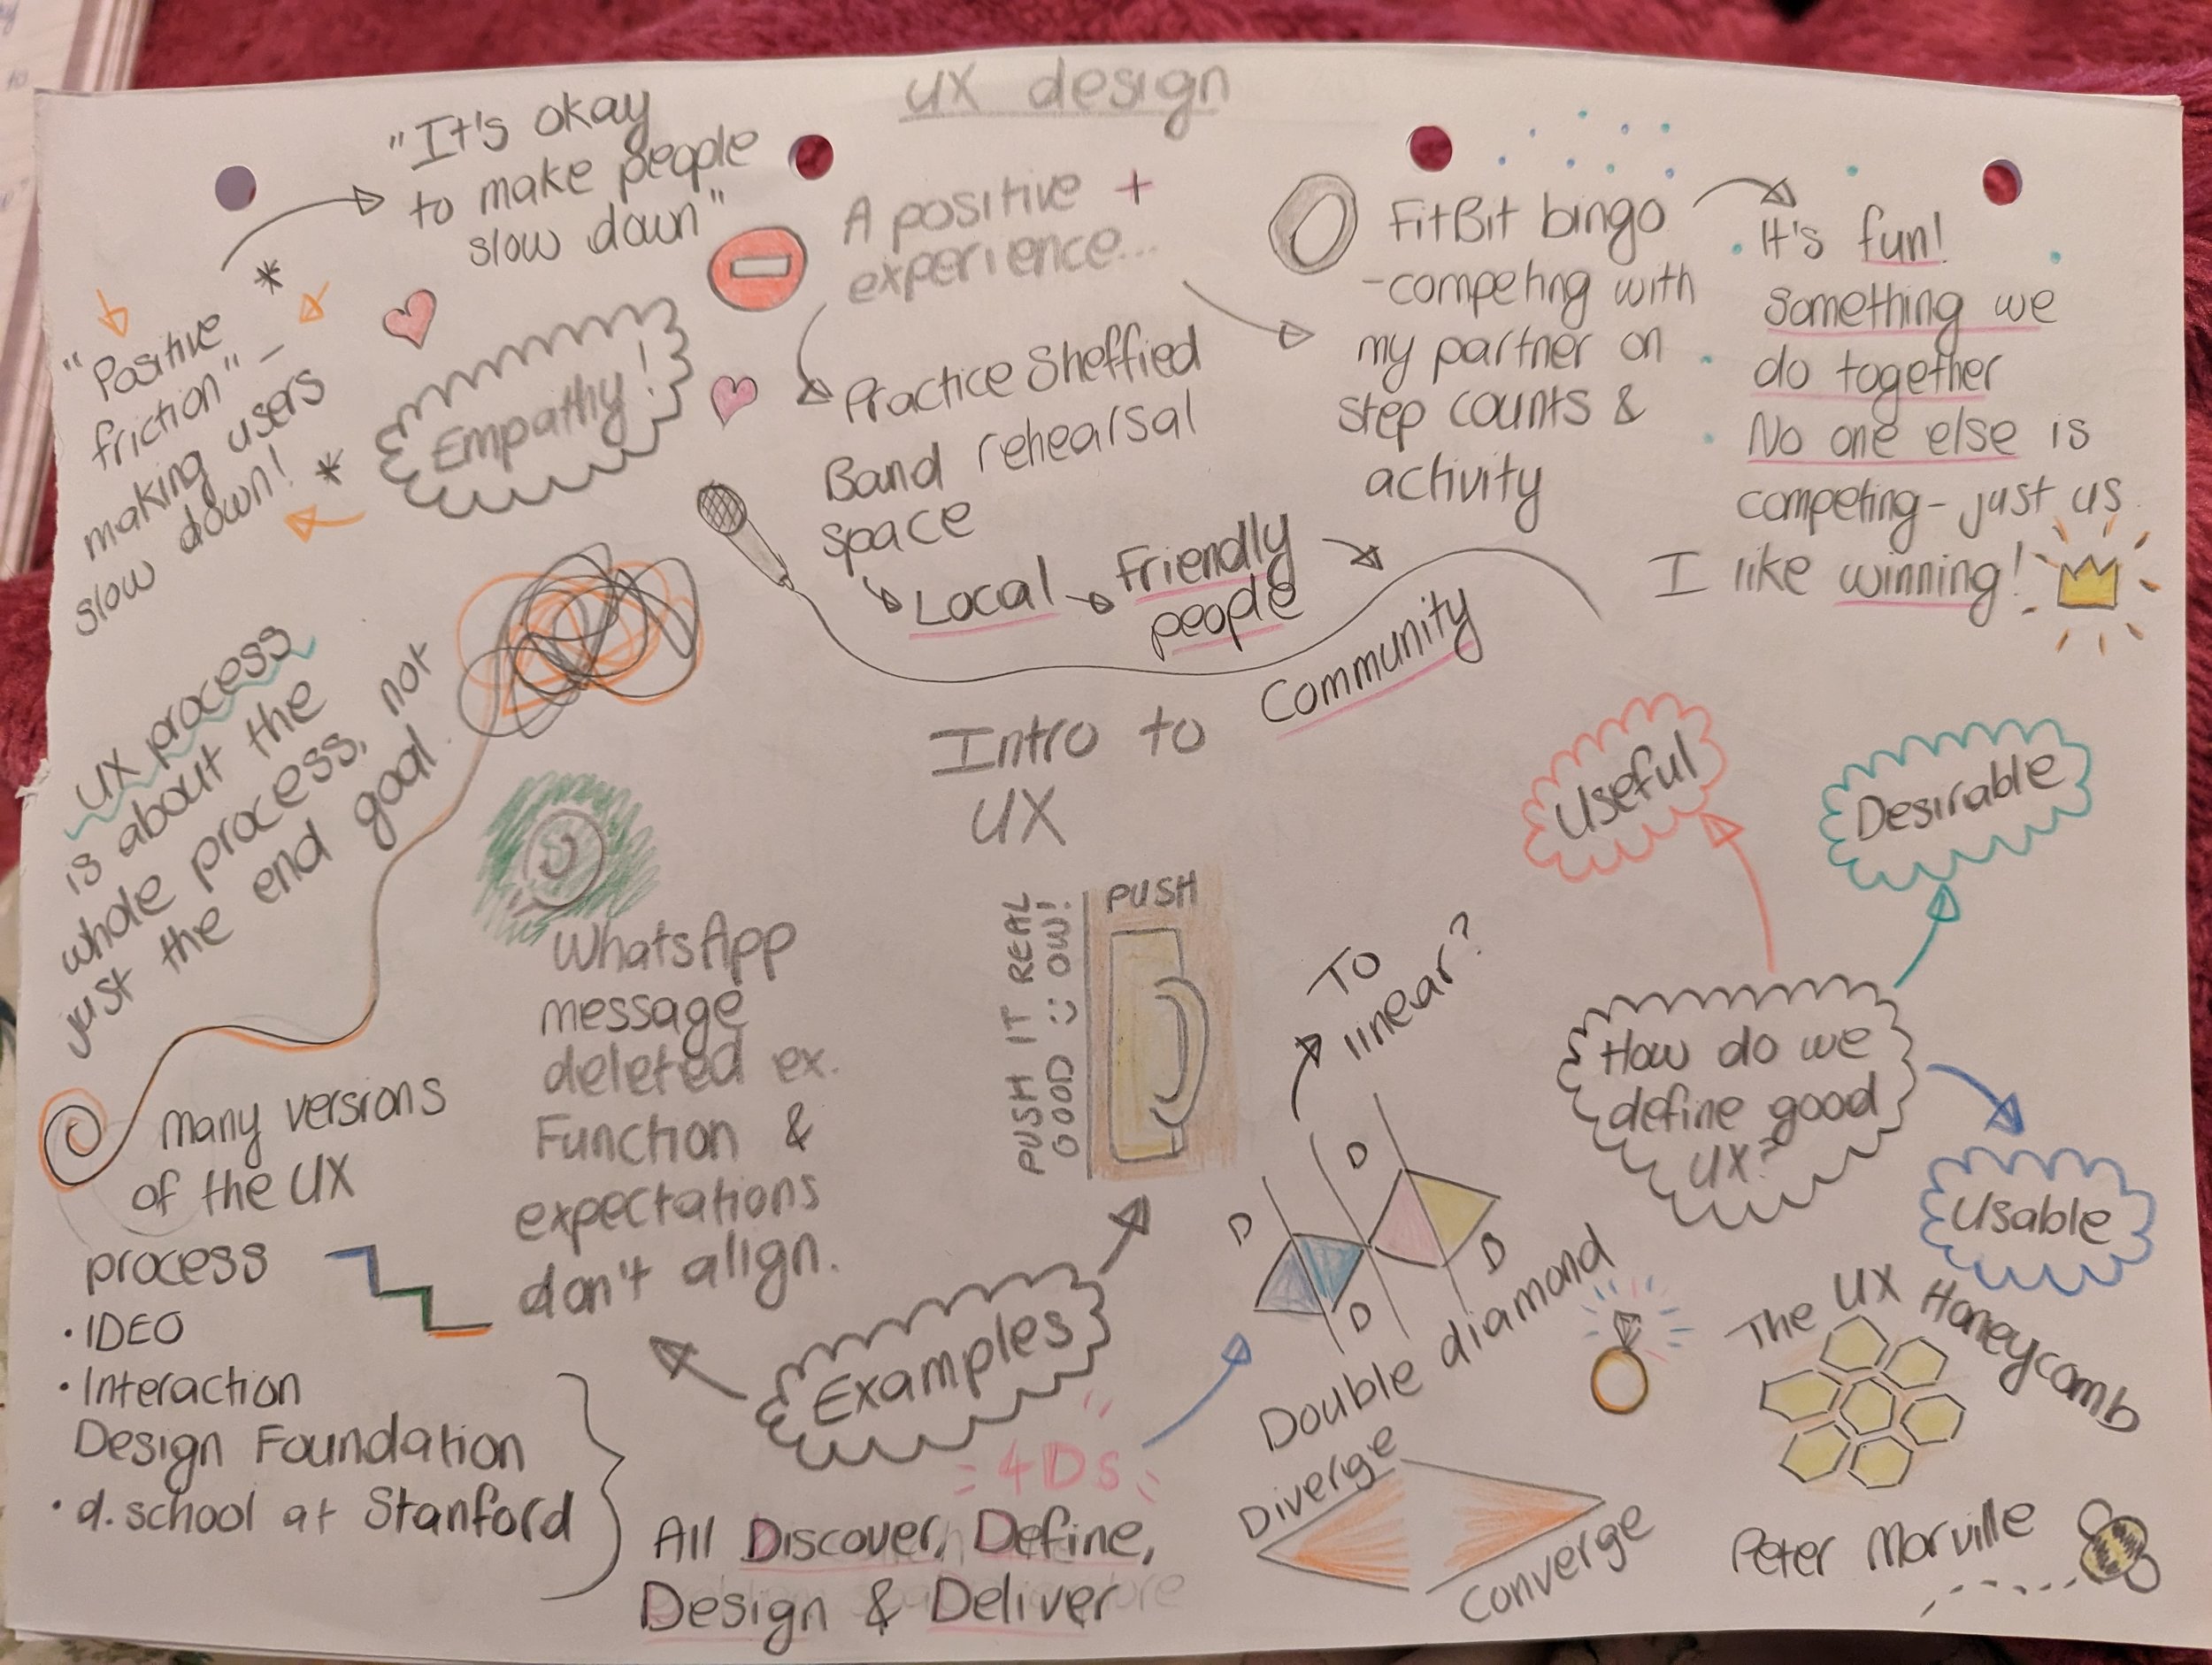 UX design
"It's okay
to make people
slow down"
"Positive
friction" -
making users
slow down!
*
*
Empathy!
A positive +
experience...
Practice Sheffied
Band rehearsal
space
Local
Friendly
people
Community
FitBit bingo
-competing with
my partner on
step counts &
activity
It's fun!
Something we
do together
No one else is
competing - just us
I like winning!
Intro to
UX
UX process
is about the
whole process, not
just the end goal.
many versions
of the UX
process
• IDEO
• Interaction
Design Foundation
• d.school at Stanford
WhatsApp
message
deleted ex.
Function &
expectations
don't align.
PUSH IT REAL
GOOD :) OW!
PUSH
Examples
4Ds
All Discover, Define,
Design & Deliver
To
linear?
D
D
D
D
Double diamond
Diverge
Converge
How do we
define good
UX?
Useful
Desirable
Usable
The UX Honeycomb
Peter Morville